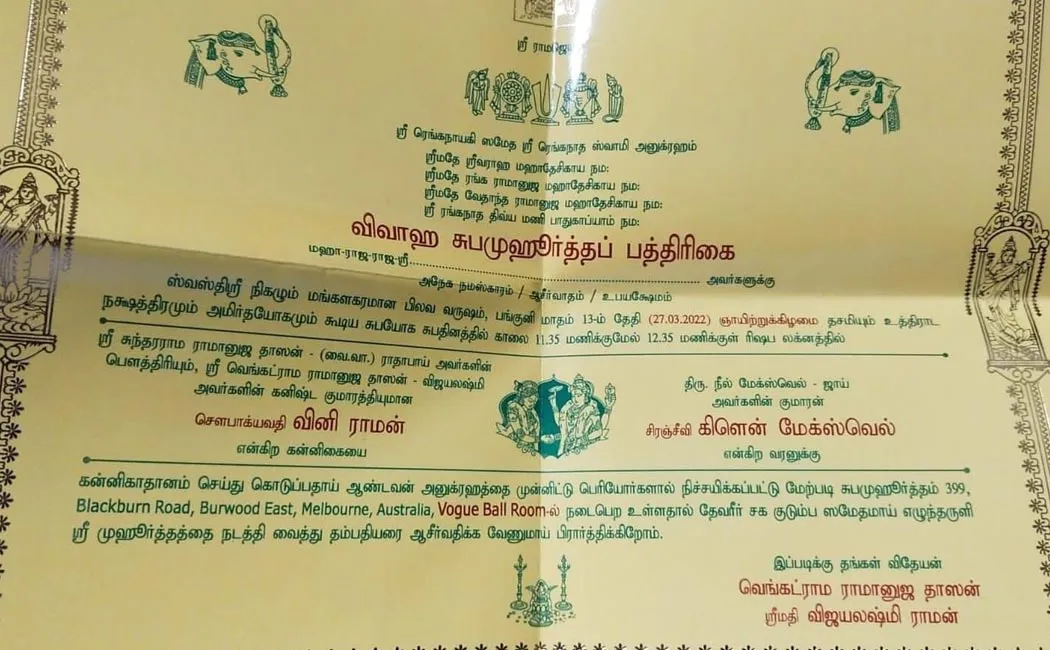 ஸ்ரீ
ஸ்ரீ ரெங்கநாயகி ஸமேத ஸ்ரீ ரெங்கநாத ஸ்வாமி அனுக்ரஹம்
ஸ்ரீமதே ஸ்ரீவராஹ மஹாதேசிகாய நம:
ஸ்ரீமதே ரங்க ராமானுஜ மஹாதேசிகாய நம:
ஸ்ரீமதே வேதாந்த ராமானுஜ மஹாதேசிகாய நம:
ஸ்ரீ ரங்கநாத திவ்ய மணி பாதுகாப்யாம் நம:
விவாஹ சுபமுஹூர்த்தப் பத்திரிகை
மஹா-ராஜ-ராஜ-ஸ்ரீ........................ அவர்களுக்கு
அநேக நமஸ்காரம் / ஆசீர்வாதம் / உபயக்ஷேமம்
ஸ்வஸ்திஸ்ரீ நிகழும் மங்களகரமான பிலவ வருஷம், பங்குனி மாதம் 13-ம் தேதி (27.03.2022) ஞாயிற்றுக்கிழமை தசமியும் உத்திராட
நக்ஷத்திரமும் அமிர்தயோகமும் கூடிய சுபயோக சுபதினத்தில் காலை 11.35 மணிக்குமேல் 12.35 மணிக்குள் ரிஷப லக்னத்தில்
ஸ்ரீ சுந்தரராம ராமானுஜ தாஸன் - (வை.வா.) ராதாபாய் அவர்களின்
பௌத்திரியும், ஸ்ரீ வெங்கட்ராம ராமானுஜ தாஸன் - விஜயலஷ்மி
அவர்களின் கனிஷ்ட குமாரத்தியுமான
சௌபாக்யவதி வினி ராமன்
என்கிற கன்னிகையை
திரு. நீல் மேக்ஸ்வெல் - ஜாய்
அவர்களின் குமாரன்
சிரஞ்சீவி கிளென் மேக்ஸ்வெல்
என்கிற வரனுக்கு
கன்னிகாதானம் செய்து கொடுப்பதாய் ஆண்டவன் அனுக்ரஹத்தை முன்னிட்டு பெரியோர்களால் நிச்சயிக்கப்பட்டு மேற்படி சுபமுஹூர்த்தம் 399,
Blackburn Road, Burwood East, Melbourne, Australia, Vogue Ball Room-ல் நடைபெற உள்ளதால் தேவரீர் சக குடும்ப ஸமேதமாய் எழுந்தருளி
ஸ்ரீ முஹூர்த்தத்தை நடத்தி வைத்து தம்பதியரை ஆசீர்வதிக்க வேணுமாய் பிரார்த்திக்கிறோம்.
இப்படிக்கு தங்கள் விதேயன்
வெங்கட்ராம ராமானுஜ தாஸன்
ஸ்ரீமதி விஜயலஷ்மி ராமன்